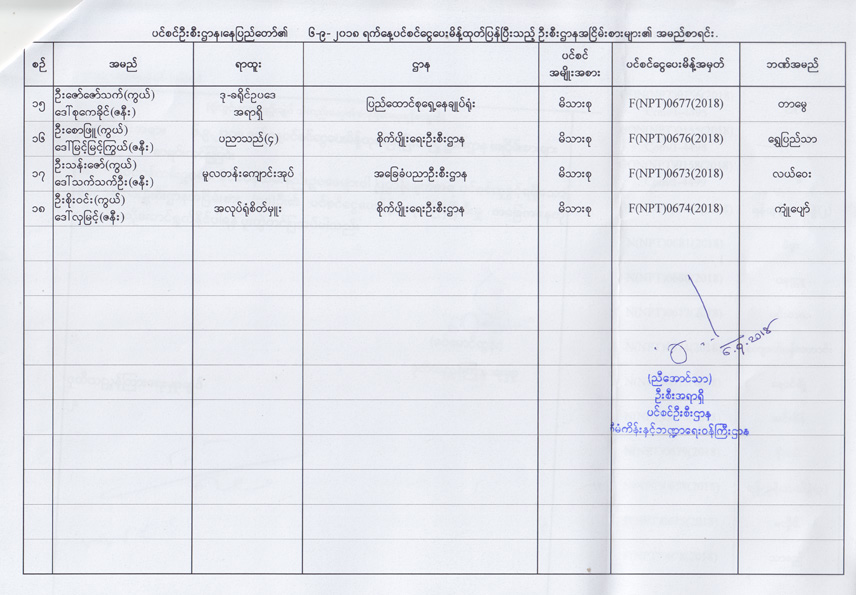 ပင်စင်ဦးစီးဌာန၊နေပြည်တော်၏ ၆-၉-၂၀၁၈ ရက်နေ့ပင်စင်ငွေပေးမိန့်ထုတ်ပြန်ပြီးသည့် ဦးစီးဌာနအငြိမ်းစားများ၏ အမည်စာရင်း.
စဉ် အမည် ရာထူး ဌာန ပင်စင် အမျိုးအစား ပင်စင်ငွေပေးမိန့်အမှတ် ဘဏ်အမည်
၁၅ ဦးဇော်ဇော်သက်(ကွယ်) ဒု-ခရိုင်ဥပဒေ ပြည်ထောင်စုရှေ့နေချုပ်ရုံး မိသားစု F(NPT)0677(2018) တာမွေ
ဒေါ်စုကေခိုင်(ဇနီး) အရာရှိ
၁၆ ဦးစောဖြူ(ကွယ်) ပညာသည်(၄) စိုက်ပျိုးရေးဦးစီးဌာန မိသားစု F(NPT)0676(2018) ရွှေပြည်သာ
ဒေါ်မြင့်မြင့်ကြွယ်(ဇနီး)
၁၇ ဦးသန်းဇော်(ကွယ်) မူလတန်းကျောင်းအုပ် အခြေခံပညာဦးစီးဌာန မိသားစု F(NPT)0673(2018) လယ်ဝေး
ဒေါ်သက်သက်ဦး(ဇနီး)
၁၈ ဦးစိုးဝင်း(ကွယ်) အလုပ်ရုံစိတ်မှူး စိုက်ပျိုးရေးဦးစီးဌာန မိသားစု F(NPT)0674(2018) ကျုံပျော်
ဒေါ်လှမြင့်(ဇနီး)
၆.၉.၂၀၁၈
(ညီအောင်သာ)
ဦးစီးအရာရှိ
ပင်စင်ဦးစီးဌာန
စီမံကိန်းနှင့်ဘဏ္ဍာရေးဝန်ကြီးဌာန